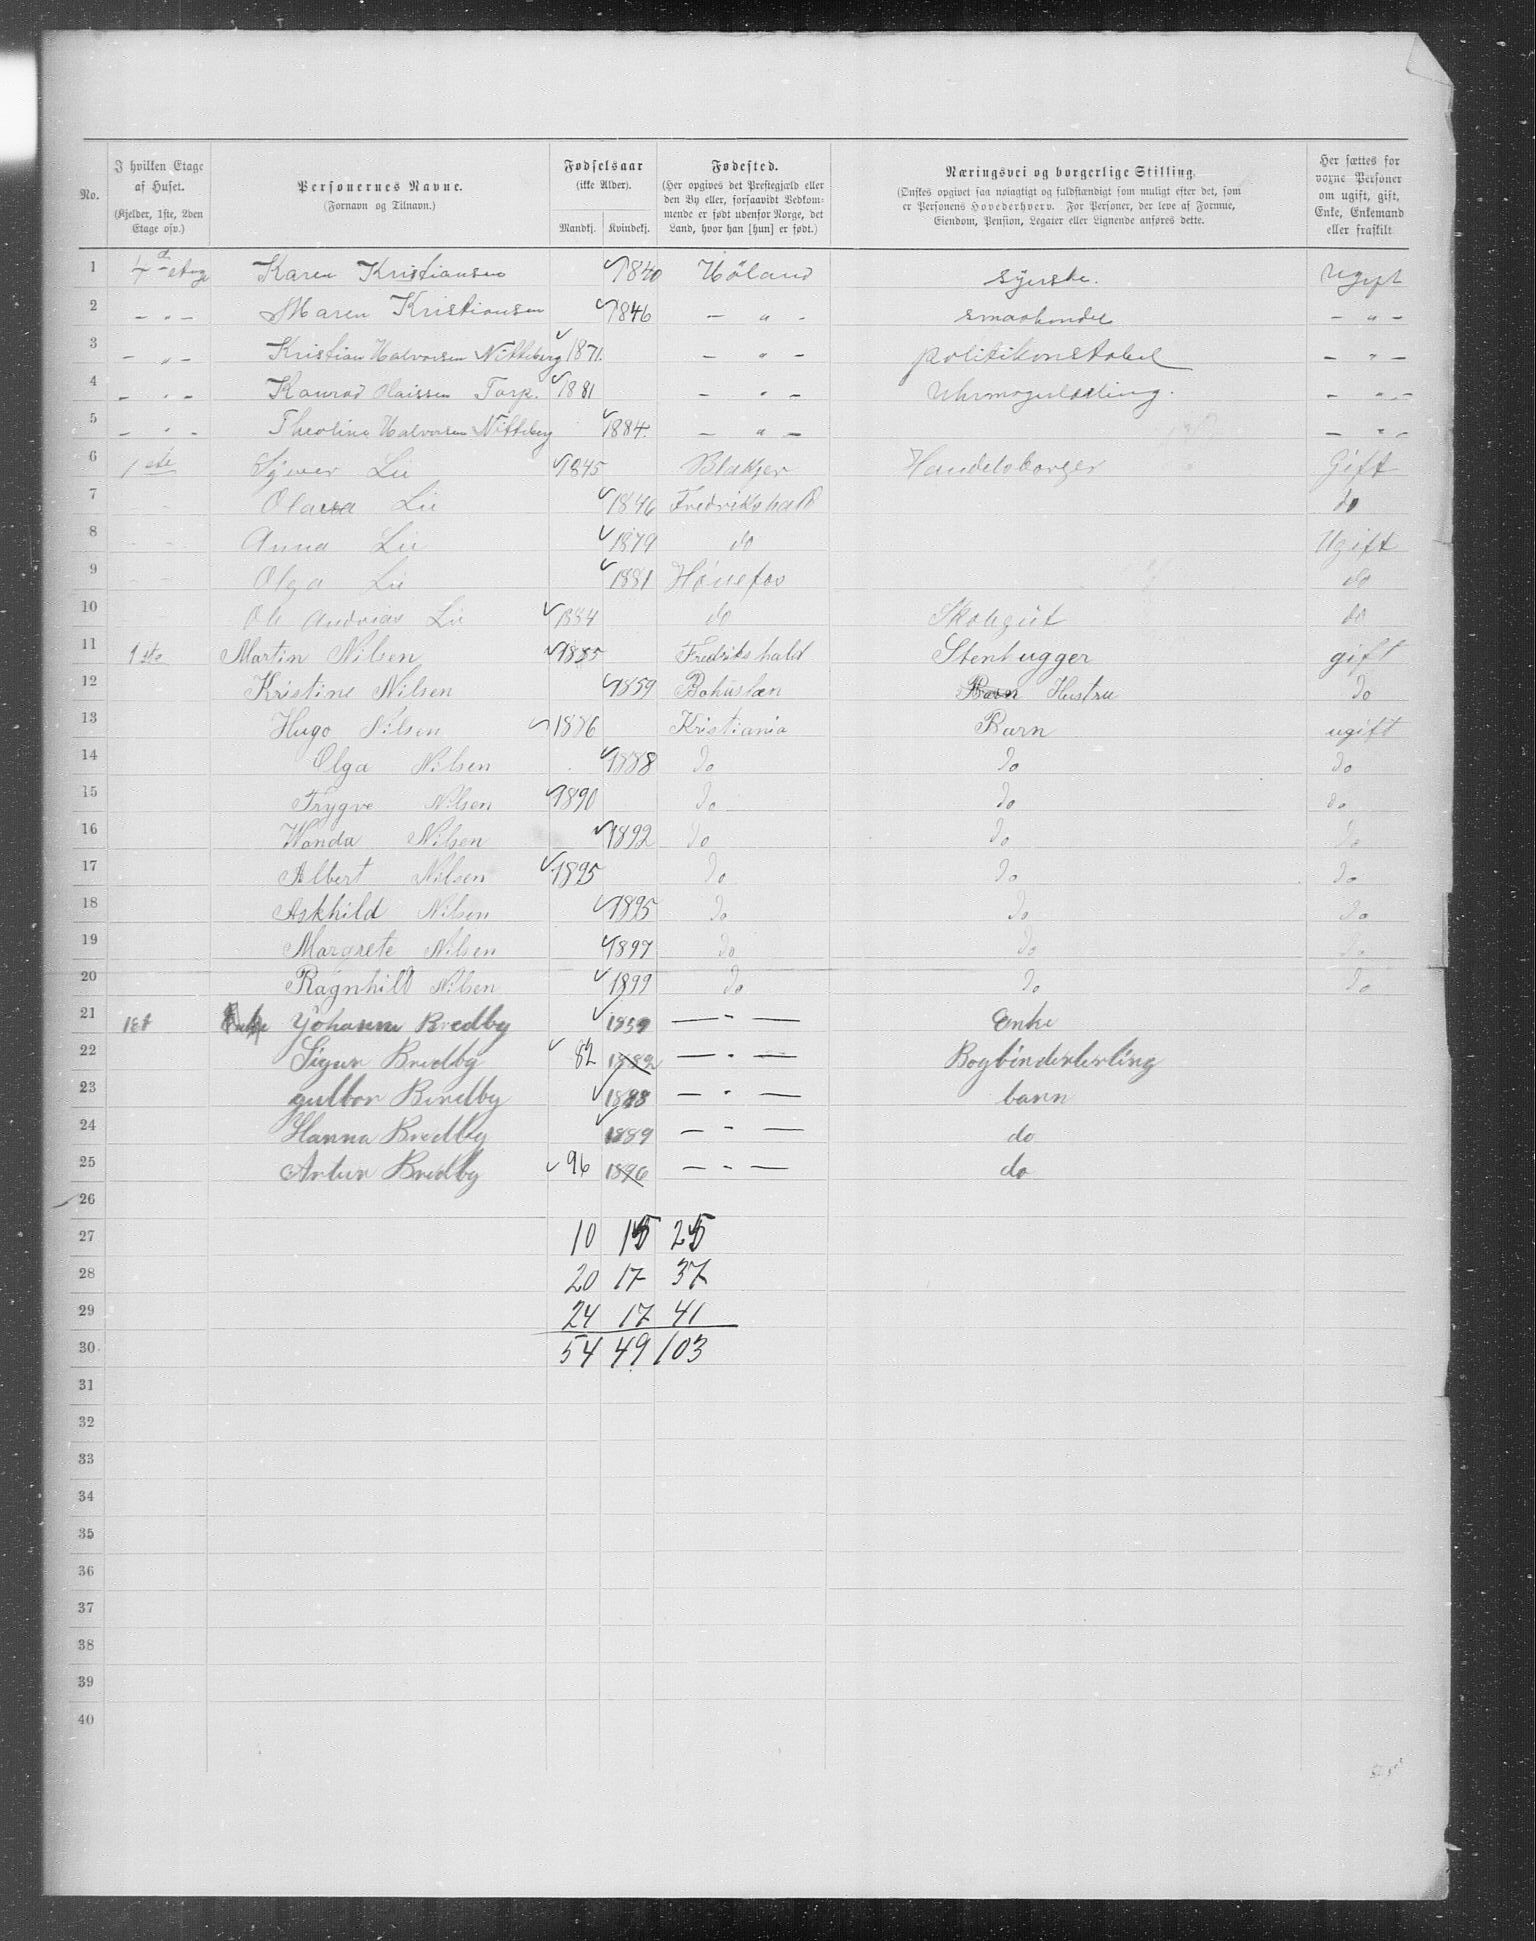 No. I hvilken Etage af Huset. (Kjelder, 1ste, 2den Etage osv.) Personernes Navne. (Fornavn og Tilnavn.) Fødselsaar (ikke Alder). Mandkj. Kvindekj. Fødested. (Her opgives det Prestegjæld eller den By eller, forsaavidt Vedkommende er født udenfor Norge, det Land, hvor han [hun] er født.) Næringsvei og borgerlige Stilling. (Ønskes opgivet saa nøiagtigt og fuldstændigt som muligt efter det, som er Personens Hovederhverv. For Personer, der leve af Formue, Eiendom, Pension, Legater eller Lignende anføres dette. Her sættes for voxne Personer om ugift, gift, Enke, Enkemand eller fraskilt
1 4 d etage Karen Kristiansen 1840 Höland syerske. ugift
2 - " - Maren Kristiansen 1846 - " - smaahandel - " -
3 - " - Kristian Halvorsen Nitteberg 1871. - " - politikonstabel - " -
4 - " - Konrad Olaissen Torp. 1881 - " - Uhrmagerlærling. - " -
5 - " - Theoline Halvorsen Nitteberg 1884. - " - - " -
6 1 ste Syver Lie 1845 Blakjer Handelsborger Gift
7 - - Olava Lie 1846 Fredrikshald do
8 - - Anna Lie 1879 do Ugift
9 - - Olga Lie 1881 Hønefos do
10 Ole Andreas Lie 1884 do Skohgut do
11 1 ste Martin Nilsen 1855 Fredrikshald Stenhugger gift
12 Kristine Nilsen 1859 Bohuslæn Barn Hustru do
13 Hugo Nilsen 1886 Kristiania Barn ugift
14 Olga Nilsen 1888 do do do
15 Trygve Nilsen 1890 do do do
16 Wanda Nilsen 1892 do do do
17 Albert Nilsen 1895 do do do
18 Askhild Nilsen 1895 do do do
19 Margrete Nilsen 1897 do do do
20 Ragnhild Nilsen 1899 do do do
21 1 et Enke Johanne Bredby 1859 — " — Enke
22 Sigur Bredby 82 1882 — " — Bogbinderlerling
23 gulbor Bredby 1888 — " — barn
24 Hanna Bredby 1889 — " — do
25 Artur Bredby 96 1896 — " — do
26
27 10 15 25
28 20 17 37
29 24 17 41
30 54 49 103
31
32
33
34
35
36
37
38
39
40